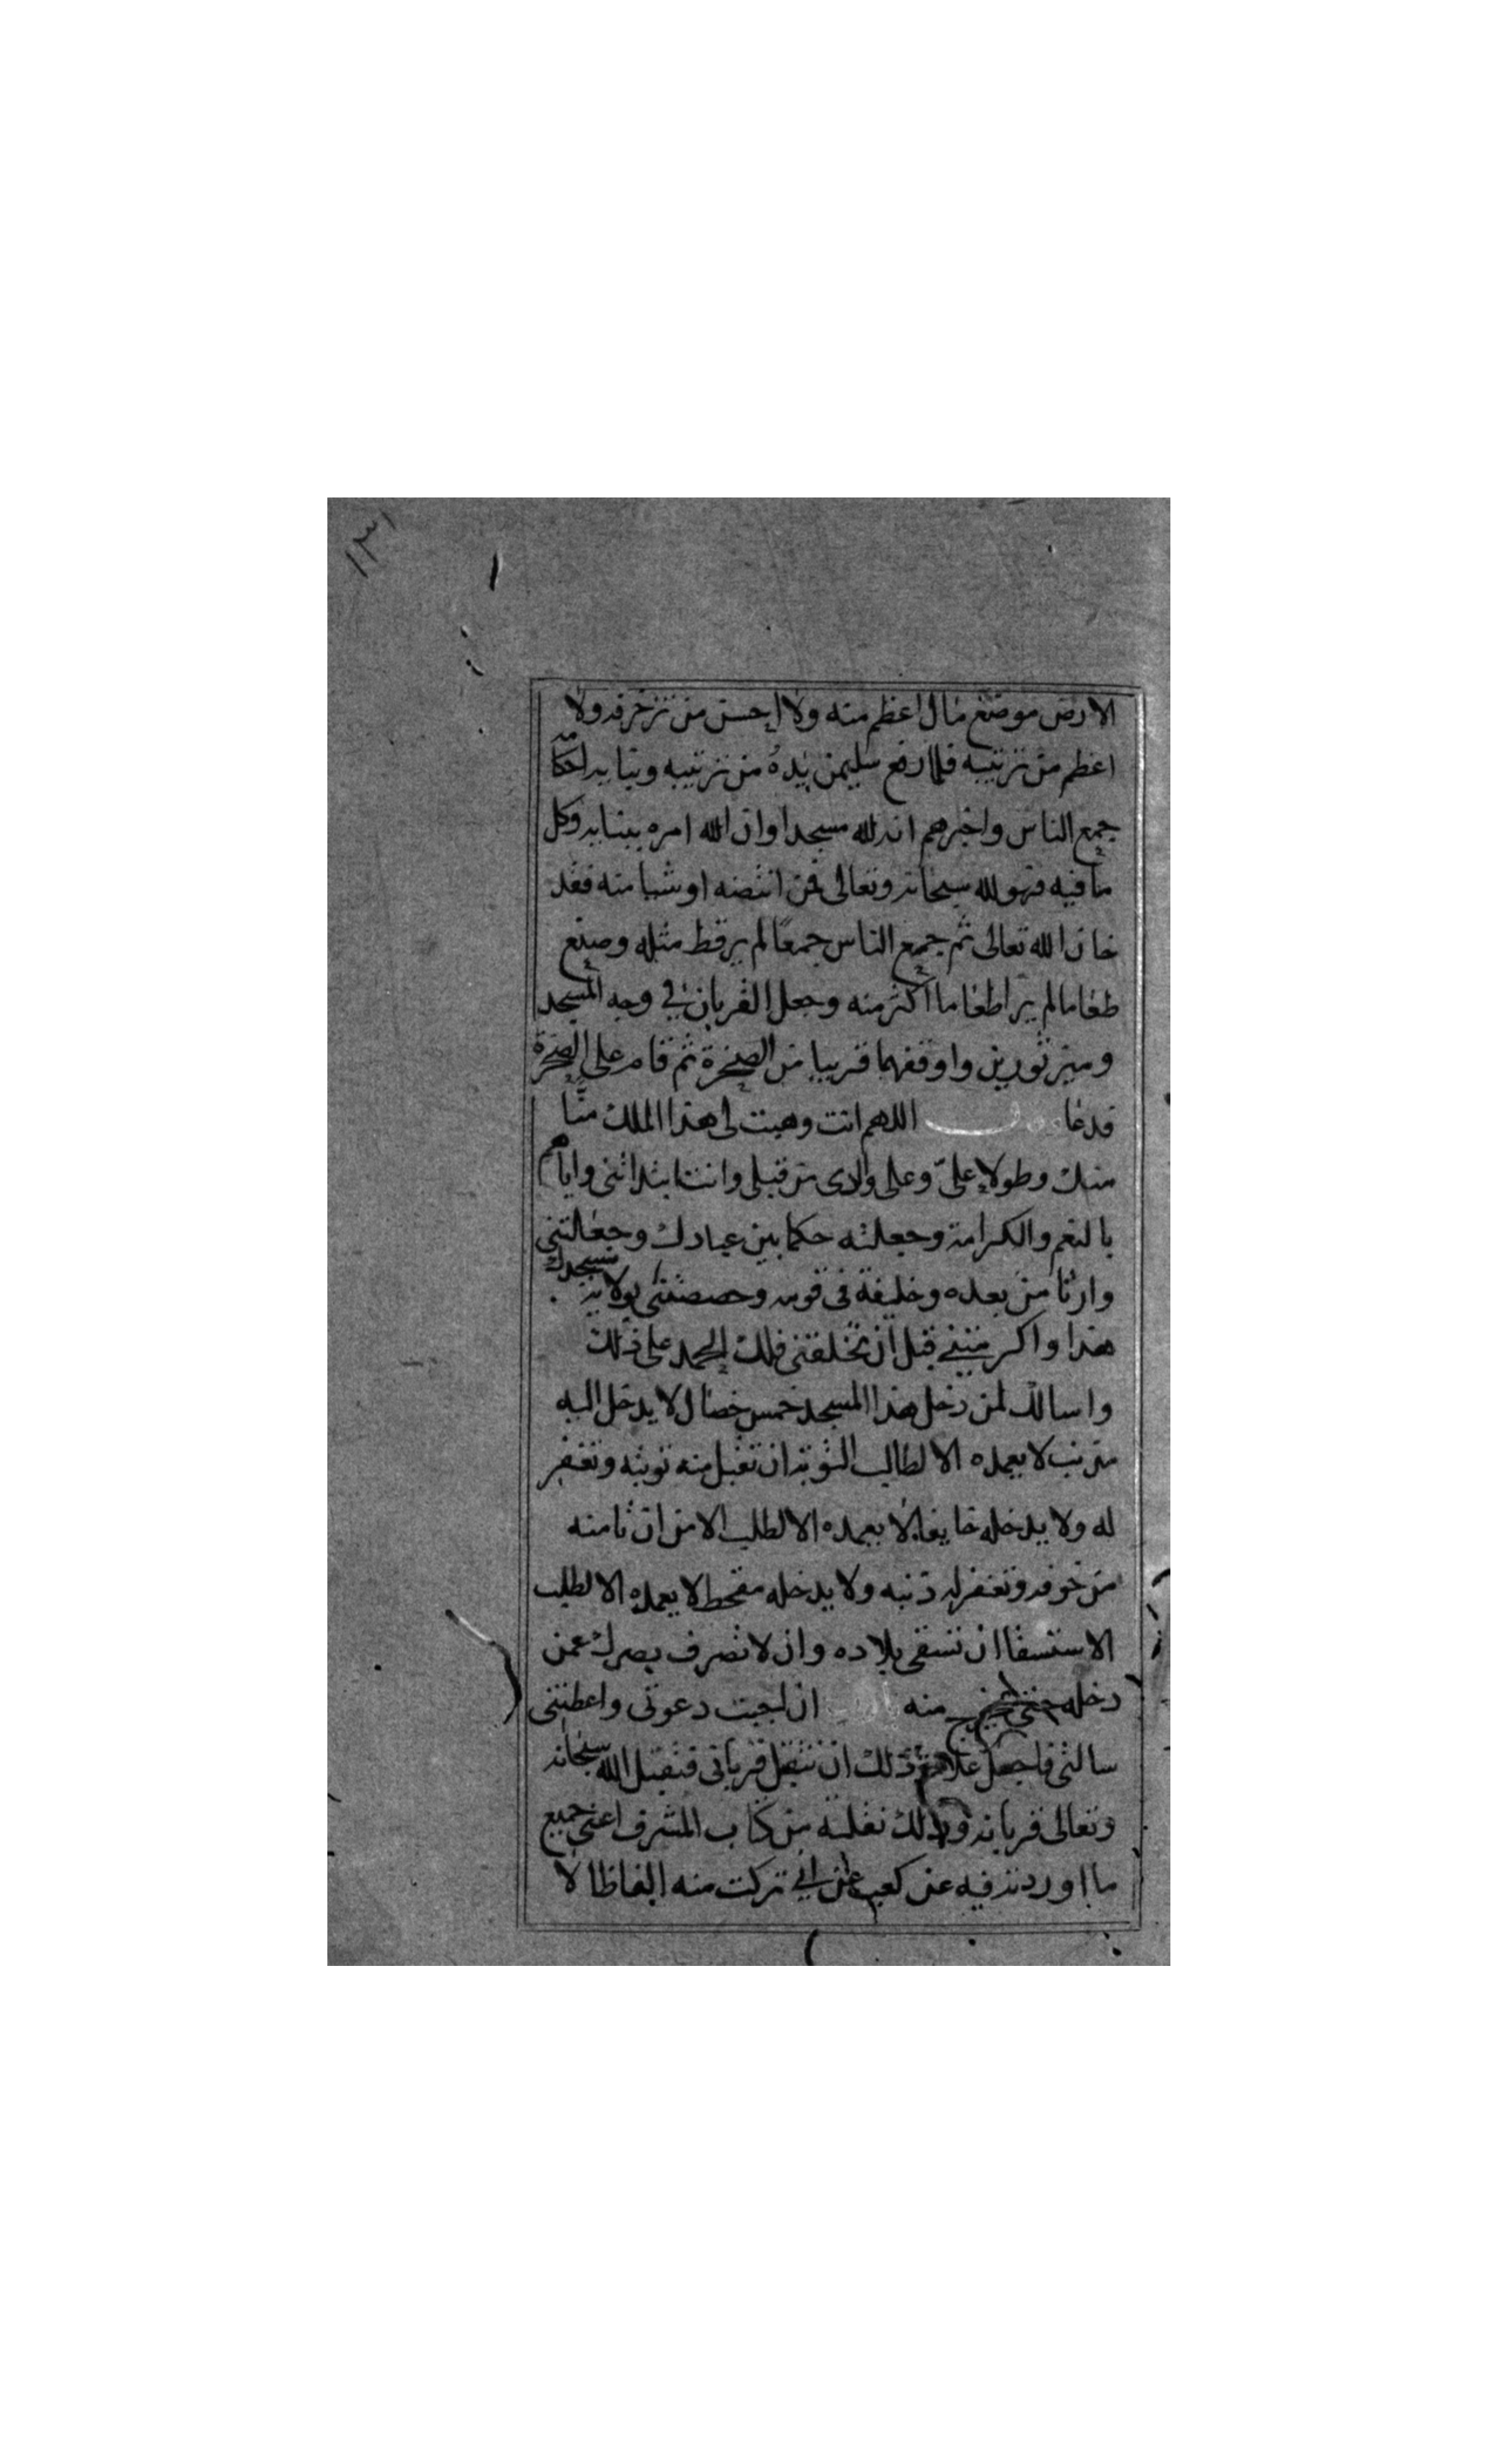 ١٣١
الارض موضع مال اعظم منه ولا احسن من زخرفه ولا
اعظم من ترتيبه فلما رفع سليمن يده من ترتيبه وبنايه احكامه
جمع الناس واخبرهم انه لله مسجدا وان الله امره ببنايه وكل
ما فيه فهو لله سبحانه وتعالى فمن انتقصه او شيا منه فقد
خان الله تعالى ثم جمع الناس جمعا لم ير قط مثله وصنع
طعاما لم ير اطعاما اكثر منه وجعل القربان في وجه المسجد
وميز ثورين واوقفهما قريبا من الصخرة ثم قام على الصخرة
فدعا اللهم انت وهبت لى هذا الملك منّا
منك وطولا علىّ وعلى والدى من قبلى وانت ابتداتنى واياهم
بالنعم والكرامة وجعلته حكما بين عبادك وجعلتنى
وارثا من بعده وخليفة فى قومه وخصصتنى بولاية مسجدك
هذا واكرمتنى قبل ان تخلقنى فلك الحمد على ذلك
واسالك لمن دخل هذا المسجد خمس خصال لا يدخل اليه
مذنب لا يعمده الا لطالب التوبة ان تقبل منه توبته وتغفر
له ولا يدخله خايفا لا يعمده الا لطلب الامن ان تامنه
من خوفه وتغفر له ذنبه ولا يدخله مقحط لا يعمده الا لطلب
الاستسقا ان تسقى بلاده وان لا تصرف بصرك عمن
دخله حتى يخرج منه ان اجبت دعوتى واعطيتنى
سالتى فاجعل علامة ذلك ان تتقبل قربانى فتقبل الله سبحانه
وتعالى قربانه وذلك نقلته من كتاب المشرف اعنى جميع
ما اوردته فيه عن كعب على انى تركت منه الفاظا لا